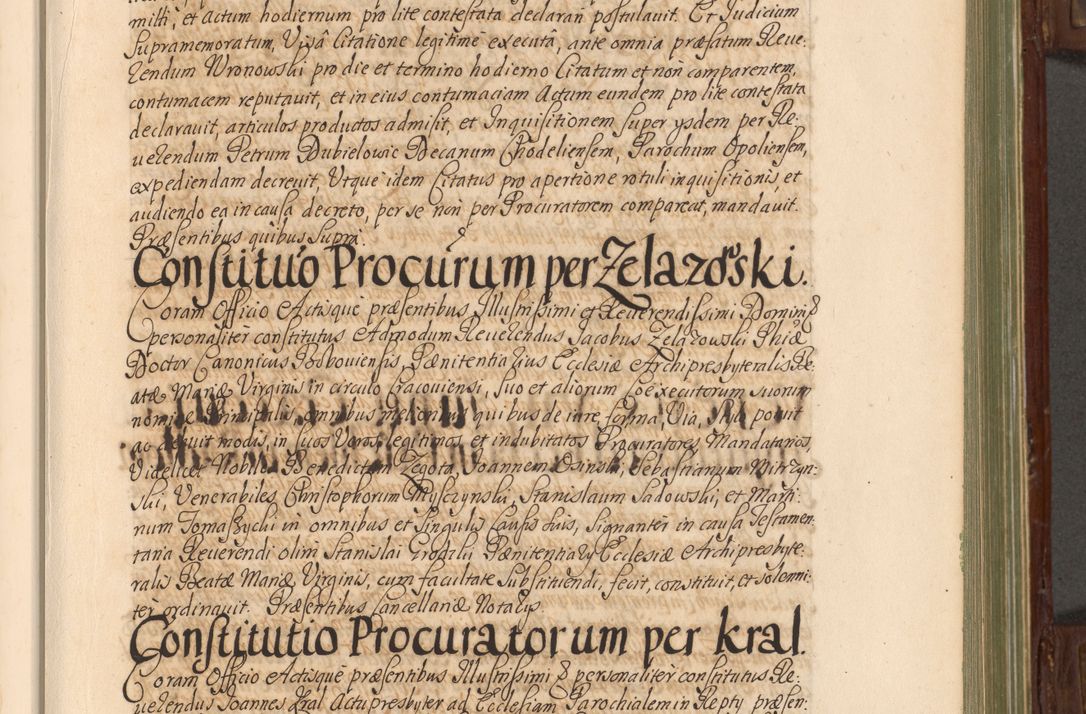 mitti, et Actum hodiernum pro lite contestata declarari postulauit. Et Judicium
Supramemoratum, Visâ Citatione legitimè executâ, ante omnia præfatum Reue-
rendum Wronowski pro die et termino hodierno Citatum et non comparentem,
contumacem reputauit, et in eius contumaciam Actum eundem pro lite contestata
declarauit, articulos productos admisit, et Inquisitionem super ysdem per Re-
uerendum Petrum Dubielowic Decanum Chodeliensem, Parochum Opoliensem,
expediendam decreuit, Utque idem Citatus pro apertione rotuli inquisitionis, et
audiendo ea in causa decreto, per se non per Procuratorem compareat, mandauit.
Præsentibus quibus supra.
Constituo Procurum per Zelazowski.
Coram Officio Actisque præsentibus Illustrissimi et Reuerendissimi Domini
personaliter constitutus Admodum Reuerendus Jacobus Zelazowski Phiæ
Doctor Canonicus Bobouiensis, Pænitentiarius Ecclesiæ Archipresbyteralis Be-
atæ Mariæ Virginis in circulo Cracouiensi, suo et aliorum Coexecutorum suorum
nomine principalis, omnibus melioribus quibus de iure forma, Via, potuit
ac debuit modis, in suos Veros, legitimos, et indubitatos Procuratores, Mandatarios,
Videlicet Nobiles Benedictum Zegota, Joannem Osinski, Sebastianum Mitrzyn-
ski, Venerabiles Christophorum Myszynski, Stanislaum Sadowski, et Marti-
num Tomaszycki in omnibus et singulis Causis suis, signanter in causa Testamen-
taria Reuerendi olim Stanislai Grodzki Pænitentiary Ecclesiæ Archipresbyte-
ralis Beatæ Mariæ Virginis, cum facultate Substituendi, fecit, constituit, et solenni-
ter ordinauit. Præsentibus Cancellariæ Notarys.
Constitutio Procuratorum per Kral.
Coram Officio Actisque præsentibus Illustrissimi personaliter constitutus Re-
uerendus Joannes Kral Actu presbyter ad Ecclesiam Parochialem in Repty præsen-